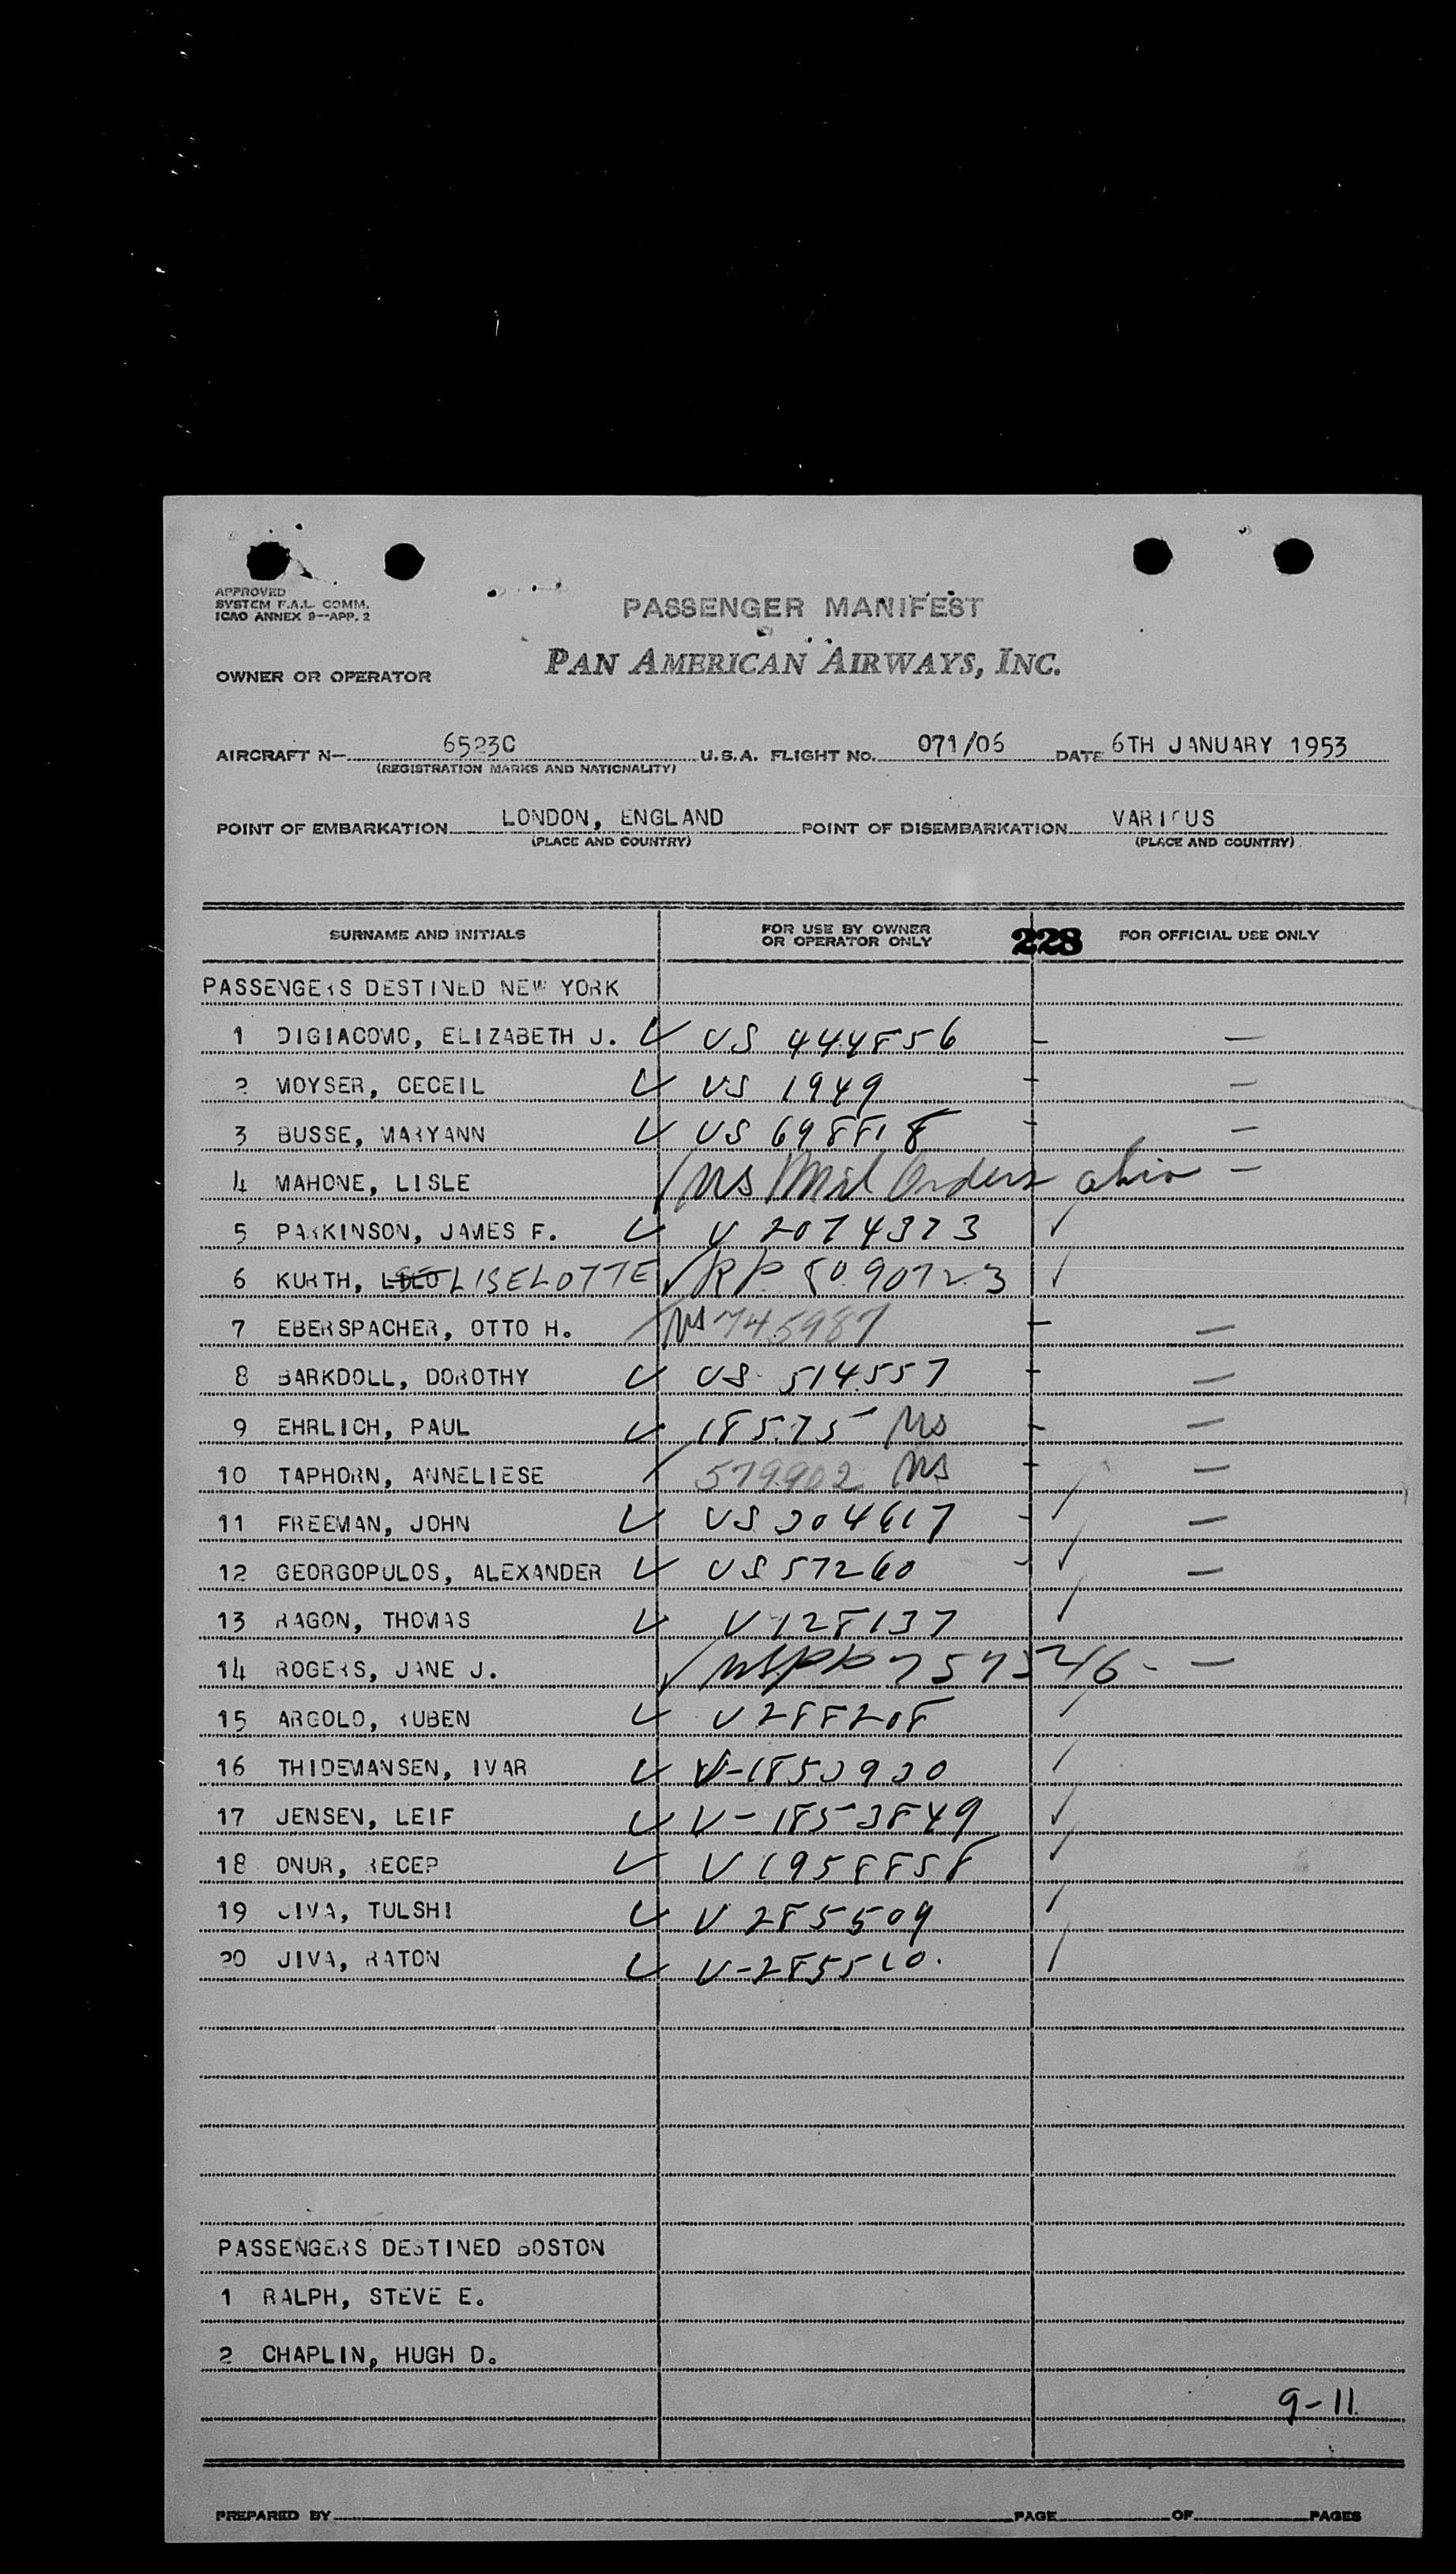 APPROVED
SYSTEM F.A.L. COMM.
ICAO ANNEX 9--APP. 2
PASSENGER MANIFEST
OWNER OR OPERATOR PAN AMERICAN AIRWAYS, INC.
AIRCRAFT N— 6523C U.S.A. FLIGHT NO. 071/06 DATE 6TH JANUARY 1953
(REGISTRATION MARKS AND NATIONALITY)
POINT OF EMBARKATION LONDON, ENGLAND POINT OF DISEMBARKATION VARIOUS
(PLACE AND COUNTRY) (PLACE AND COUNTRY)
SURNAME AND INITIALS FOR USE BY OWNER OR OPERATOR ONLY 228 FOR OFFICIAL USE ONLY
PASSENGERS DESTINED NEW YORK
1 DIGIACOMO, ELIZABETH J. ✓ US 444856 - —
2 MOYSER, CECEIL ✓ US 1949 - —
3 BUSSE, MARYANN ✓ US 698818 - —
4 MAHONE, LISLE / US Mil Orders —
5 PARKINSON, JAMES F. ✓ V 2074373 ✓
6 KURTH, LISELOTTE ✓ 8090723 ✓
7 EBERSPACHER, OTTO H. / US 745987 - —
8 BARKDOLL, DOROTHY ✓ US 514557 - —
9 EHRLICH, PAUL ✓ 18575 US - —
10 TAPHORN, ANNELIESE / 579902 US - —
11 FREEMAN, JOHN ✓ US 304617 - —
12 GEORGOPULOS, ALEXANDER ✓ US 57260 - ✓ —
13 RAGON, THOMAS ✓ V 128137 ✓
14 ROGERS, JANE J. ✓ USPP 757546 - —
15 ARGOLO, RUBEN ✓ V 288208 ✓
16 THIDEMANSEN, IVAR ✓ V-1853930 ✓
17 JENSEN, LEIF ✓ V-1853849 ✓
18 ONUR, RECEP ✓ V 1958858 ✓
19 JIVA, TULSHI ✓ V 285509 ✓
20 JIVA, RATON ✓ V-285510. ✓
PASSENGERS DESTINED BOSTON
1 RALPH, STEVE E.
2 CHAPLIN, HUGH D.
9-11
PREPARED BY PAGE OF PAGES